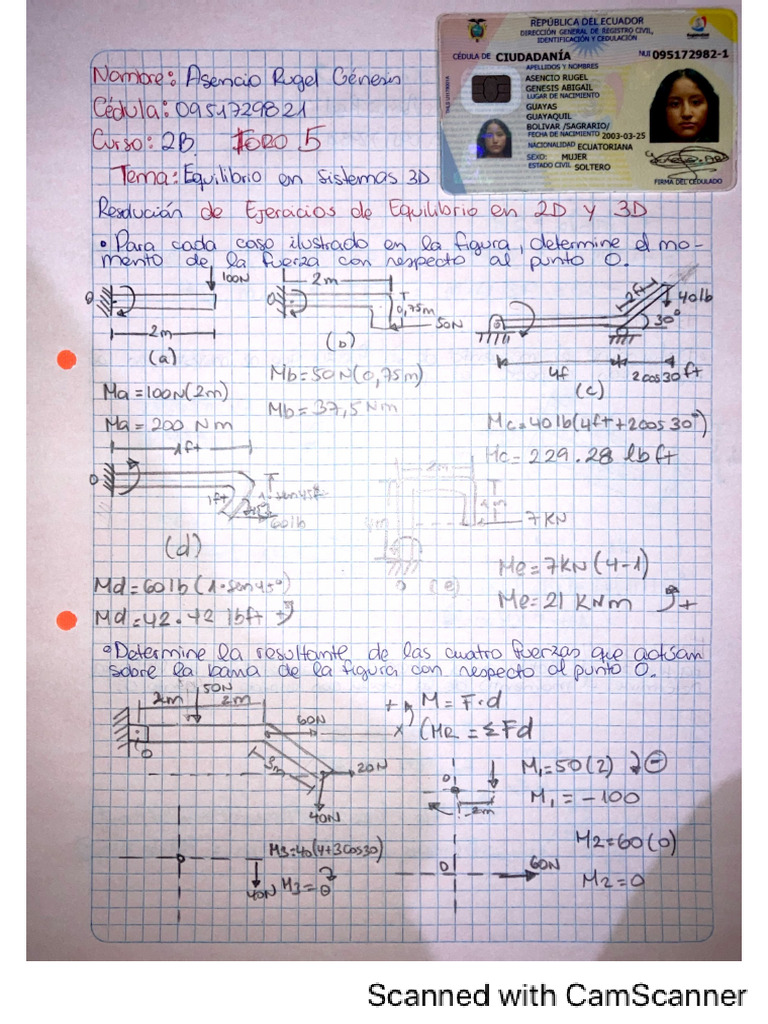 REPÚBLICA DEL ECUADOR
DIRECCIÓN GENERAL DE REGISTRO CIVIL,
IDENTIFICACIÓN Y CEDULACIÓN
CÉDULA DE CIUDADANÍA
NUI 095172982-1
APELLIDOS Y NOMBRES
ASENCIO RUGEL
GENESIS ABIGAIL
LUGAR DE NACIMIENTO
GUAYAS
GUAYAQUIL
BOLIVAR /SAGRARIO/
FECHA DE NACIMIENTO 2003-03-25
NACIONALIDAD ECUATORIANA
SEXO: MUJER
ESTADO CIVIL SOLTERO
FIRMA DEL CEDULADO
Nombre: Asencio Rugel Génesis
Cédula: 0951729821
Curso: 2B FORO 5
Tema: Equilibrio en Sistemas 3D
Resolución de Ejercicios de Equilibrio en 2D y 3D
• Para cada caso ilustrado en la figura, determine el mo-
mento de la fuerza con respecto al punto O.
O 100N 2m
(a)
Ma=100N(2m)
Ma=200 Nm
O 2m 0,75m 50N
(b)
Mb=50N(0,75m)
Mb=37,5Nm
2ft 40lb 30°
4f 2cos30ft
(c)
Mc=40lb(4ft+2cos30°)
Mc=229.28 lbft
1ft
O 1ft 1.sen45° 60lb
(d)
Md=60lb(1.sen45°)
Md=42.42 lbft +
2m
7KN
(e)
Me=7KN(4-1)
Me=21 KNm +
• Determine la resultante de las cuatro fuerzas que actúan
sobre la barra de la figura con respecto al punto O.
2m 50N 2m
60N
O
3m 20N
40N
+ M=F.d
x (MR=ΣFd
M1=50(2) ⊖
M1=-100
O 2m
M2=60(0)
M2=0
O 60N
M3=40(4+3Cos30)
40N M3=
Scanned with CamScanner